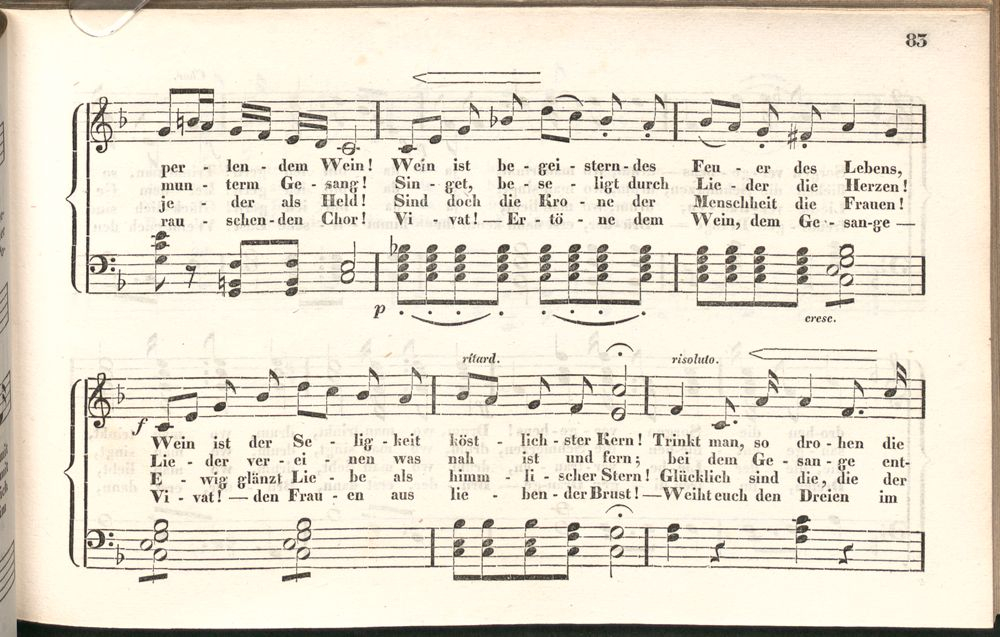 83
per - len - dem Wein! Wein ist be - gei - stern - des Feu - er des Lebens,
mun - term Ge - sang! Sin - get, be - se - ligt durch Lie - der die Herzen!
je - der als Held! Sind doch die Kro - ne der Menschheit die Frauen!
rau - schen - den Chor! Vi - vat! — Er - tö - ne dem Wein, dem Ge - san - ge —
p
cresc.
ritard. risoluto.
f
Wein ist der Se - lig - keit köst - lich - ster Kern! Trinkt man, so dro - hen die
Lie - der ver - ei - nen was nah ist und fern; bei dem Ge - san - ge ent-
E - wig glänzt Lie - be als himm - li - scher Stern! Glücklich sind die, die der
Vi - vat! — den Frau - en aus lie - ben - der Brust! — Weiht euch den Dreien im